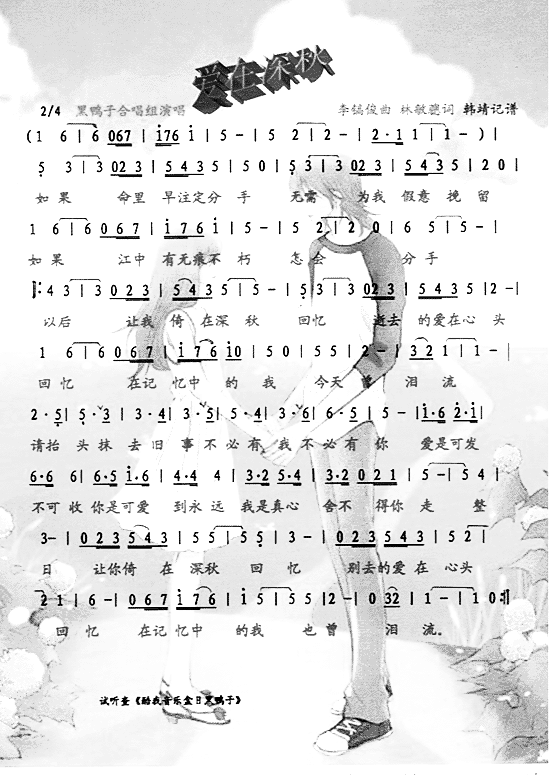 爱在深秋
2/4 黑鸭子合唱组演唱 李镐俊曲 林敏骢词 韩靖记谱
(1 6 | 6 067 | i76 i | 5 - | 5 2 | 2 - | 2·1 | 1 - | 1 - ) |
5 3 | 3 023 | 5435 | 5 0 | 5 3 | 3 023 | 5435 | 5 - | 2 0 |
如 果 命里 早注定分 手 无需 为我 假意 挽 留
1 6 | 6 067 | i76i | 5 - | 5 2 | 2 0 | 6· 5 | 5 - | 5 - |
如 果 江中 有无痕不 朽 怎会 分 手
4 3 | 3 0 | 023 | 5435 | 5 - | 5 3 | 3 0 | 023 | 5435 | 2 - |
以后 让我 倚 在深 秋 回忆 逝去 的爱在心 头
1 6 | 6 067 | i76i0 | 5 0 | 5 5 | 5 2 | 2 - | 321 | 1 - |
回 忆 在记 忆中 的 我 今天 曾 泪 流
2· 5 | 5· 3 | 3·4 | 3· 5 | 5·4 | 3·4 | 3·6 | 6· 5 | 5 - | i·6 2·i |
请抬 头抹 去旧 事 不必有 我 不必有 你 爱是可发
6·6 6 | 6·5 i·6 | 4·4 4 | 3·2 5·4 | 3·2 021 | 5 - | 5 4 |
不可 收 你是可爱 到永远 我是真心 舍不 得你 走 整
3 - | 023 543 | 5 5 | 5 5 | 3 - | 023 5435 | 5 2 |
日 让你倚 在 深秋 回 忆 别去的爱 在 心头
2 1 | 6 - | 067 i76 | i 5 | 5 5 | 2 - | 032 | 1 - | 1 0 :||
回 忆 在记忆中 的我 也 曾 泪 流。
试听查《酷我音乐盒日黑鸭子》